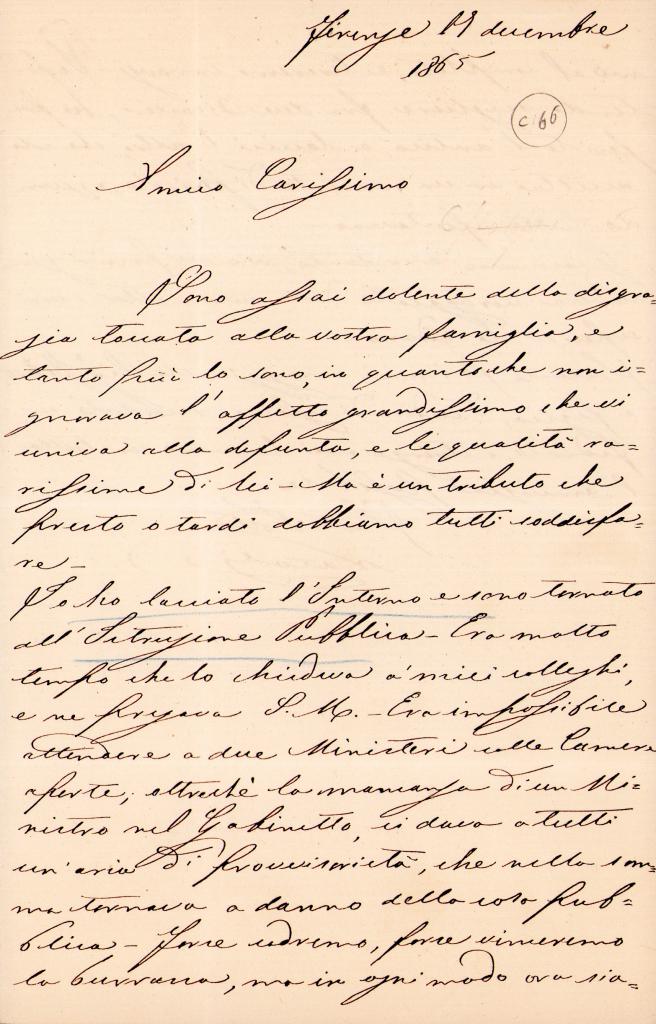 Firenze 19 dicembre
1865
C 66
Amico Carissimo
Sono assai dolente della disgra=
zia toccata alla vostra famiglia, e
tanto più lo sono, in quantoche non i=
gnorava l'affetto grandissimo che vi
univa alla defunta, e le qualità ra=
rissime di lei - Ma è un tributo che
presto o tardi dobbiamo tutti soddisfa=
re -
Io ho lasciato l'Interno e sono tornato
all'Istruzione Pubblica - Era molto
tempo che lo chiedeva a' miei colleghi,
e ne pregava S. M. - Era impossibile
attendere a due Ministeri colle Camere
aperte; oltreché la mancanza di un Mi=
nistro nel Gabinetto, ci dava a tutti
un'aria di provvisorietà, che nella som=
ma tornava a danno della cosa pub=
blica - Forse cadremo, forse vinceremo
la burrasca, ma in ogni modo ora sia=